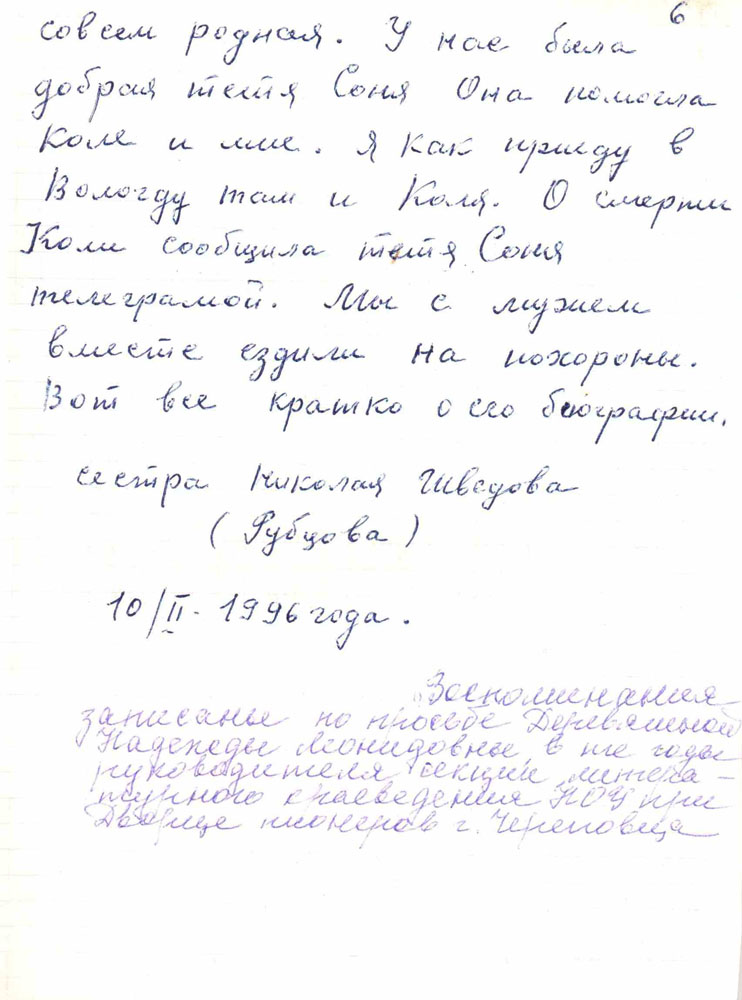 6
совсем родная. У нас была
добрая тетя Соня Она помогла
Коле и мне. Я как приеду в
Вологду там и Коля. О смерти
Коли сообщила тетя Соня
телеграмой. Мы с мужем
вместе ездили на похороны.
Вот все кратко о его биографии.
сестра Николая Шведова
(Рубцова)
10/II - 1996 года.
Воспоминания
записаны по просьбе Деревяшной
Надежды Леонидовны в те годы
руководителя секции литера-
турного краеведения НОУ при
Дворце пионеров г. Череповца